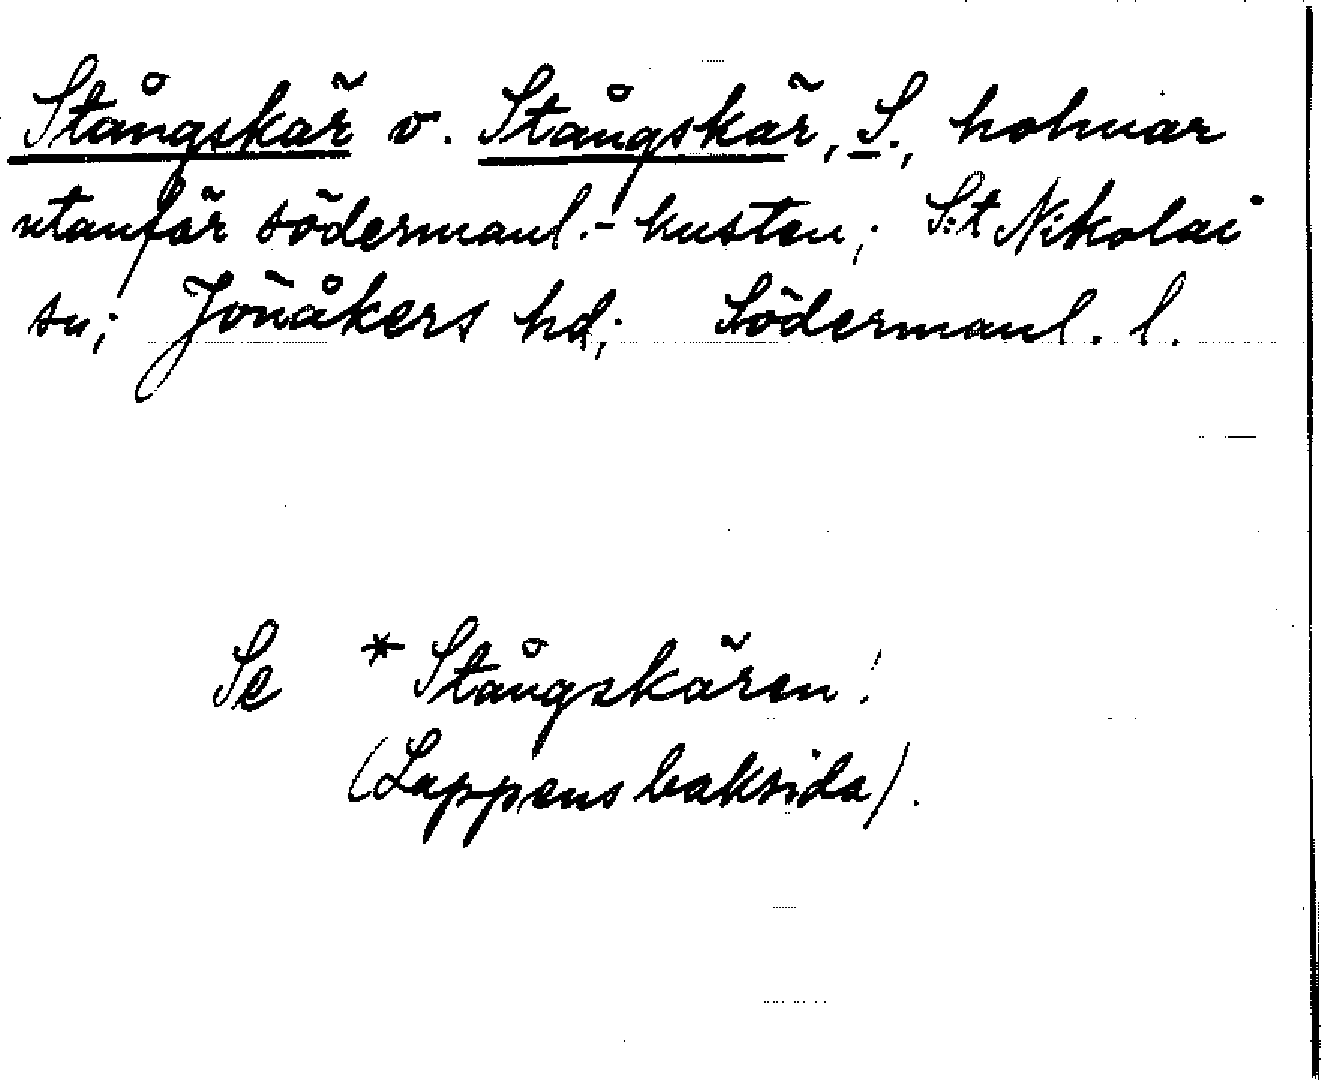 Stångskär o. Stångskär, S., holmar
utanför södermanl.-kusten; S:t Nikolai
sn; Jönåkers hd; Södermanl. l.
Se *Stångskären!
(Lappens baksida).